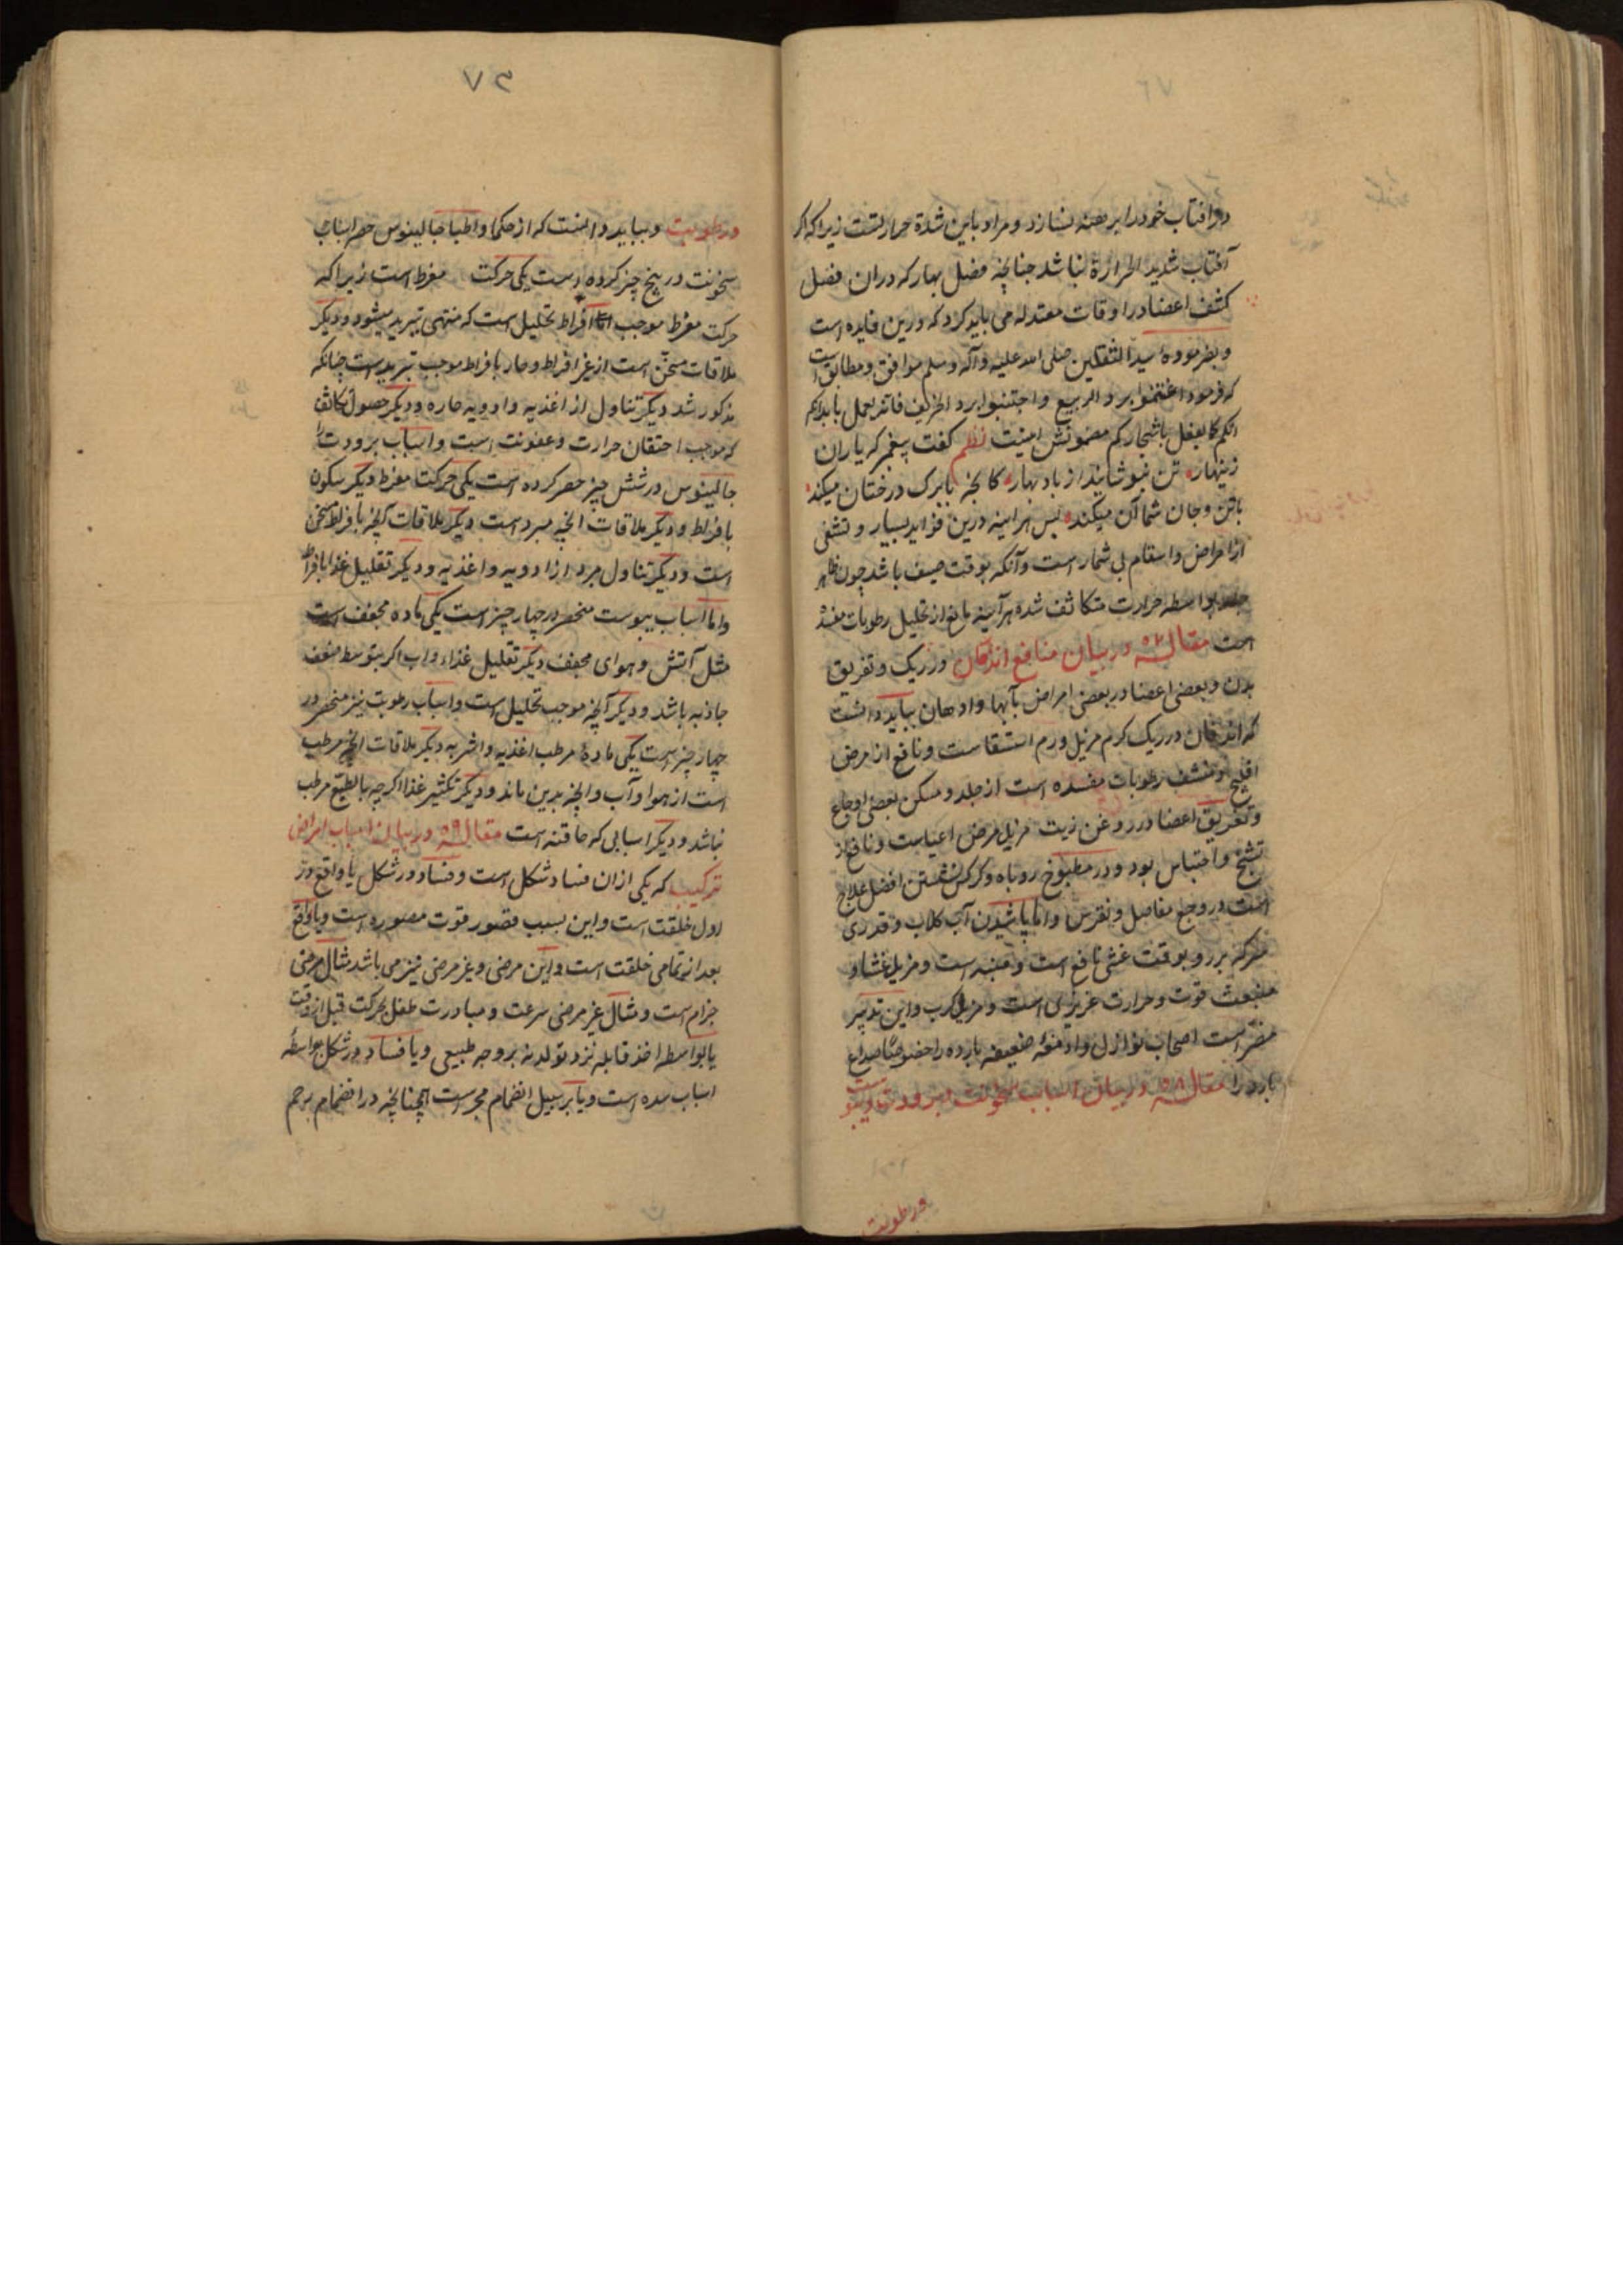 در آفتاب خود را برهنه نسازد و مراد باین شدة حرارتست زیرا که اگر
آفتاب شدید الحرارة نباشد چنانچه فصل بهار که دران فصل
کشف اعضا در اوقات معتدله می باید کرد که درین فایده است
و بفرموده سید الثقلین صلی الله علیه وآله وسلم موافق و مطابق است
که فرمود اغتنموا برد الربیع و اجتنبوا برد الخریف فانه یعمل بابدانکم
کما یعمل باشجارکم مضمونش اینست نظم گفت پیغمبر که یاران
زینهار تن نپوشانید از باد بهار کانچه با برک درختان میکند
با تن و جان شما آن میکند پس هراینه درین فواید بسیار و تشفی
از امراض و اسقام بی شمار است و آنکه بوقت صیف باشد چون ظاهر
جلد بواسطه حرارت متکاثف شده هرآینه مانع از تحلیل رطوبات مفسده
است مقاله ۵۷ در بیان منافع اندفان در ریک و تغریق
بدن و بعضی اعضا در بعضی امراض بآبها و ادهان بباید دانست
که اندفان در ریک کرم مزیل ورم استسقاست و نافع از مرض
و منشف رطوبات مفسده است از جلد و مسکن بعضی اوجاع
و تغریق اعضا در روغن زیت مزیل مرض اعیاست و نافع از
تشنج و احتباس بود و در مطبوخ روباه و کرکس نشستن افضل علاج
است در وجع مفاصل و نقرس و اما پاشیدن آب کلاب و قدری
سرکه بر رو بوقت غشی نافع است و منبه است و مزیل غشا و
منبعث قوت و حرارت غریزی است و مزیل کرب و این تدبیر
مضر است اصحاب نوازل و ادمغه ضعیفه بارده را خصوصا صداع
بارد را مقاله ۵۸ در بیان اسباب سخونت و برودت و یبوست
ورطوبت
۷۳
ورطوبت و بباید دانست که از حکما و اطبا جالینوس حصر اسباب
سخونت در پنج چیز کرده است یکی حرکت مفرط است زیرا که
حرکت مفرط موجب افراط تحلیل است که منتهی تبرید میشود و دیکر
ملاقات مسخن است از غیر افراط و حار بافراط موجب تبرید است چنانکه
مذکور شد دیکر تناول از اغذیه و ادویه حاره و دیکر حصول تکاثف
که موجب احتقان حرارت و عفونت است و اسباب برودت را
جالینوس در شش چیز حصر کرده است یکی حرکت مفرط دیکر سکون
بافراط و دیکر ملاقات آنچه مبرد است دیکر ملاقات آنچه بافراط مسخن
است و دیکر تناول مبرد از ادویه و اغذیه و دیکر تقلیل غذا بافراط
واما اسباب یبوست منحصر در چهار چیز است یکی ماده مجفف است
مثل آتش و هوای مجفف دیکر تقلیل غذا و اب اکر بتوسط ضعف
جاذبه باشد و دیکر آنچه موجب تحلیل است و اسباب رطوبت نیز منحصر در
چهار چیز است یکی ماده مرطب اغذیه و اشربه دیکر ملاقات آنچه مرطب
است از هوا و آب و آنچه بدین ماند و دیکر تکثیر غذا اکرچه بالطبع مرطب
نباشد و دیکر اسبابی که حاقنه است مقاله ۵۹ در بیان اسباب امراض
ترکیب که یکی ازان فساد شکل است و فساد در شکل یا واقع در
اول خلقت است و این بسبب قصور قوت مصوره است و یا واقع
بعد از تمامی خلقت است و این مرضی و غیر مرضی نیز می باشد مثال مرضی
جزام است و مثال غیر مرضی سرعت و مبادرت طفل بحرکت قبل از وقت
یا بواسطه اخذ قابله نزد تولد نه بر وجه طبیعی و یا فساد در شکل بواسطه
اسباب سده است و یا بر سبیل انضمام مجریست آنچنانچه در انضمام بر هم